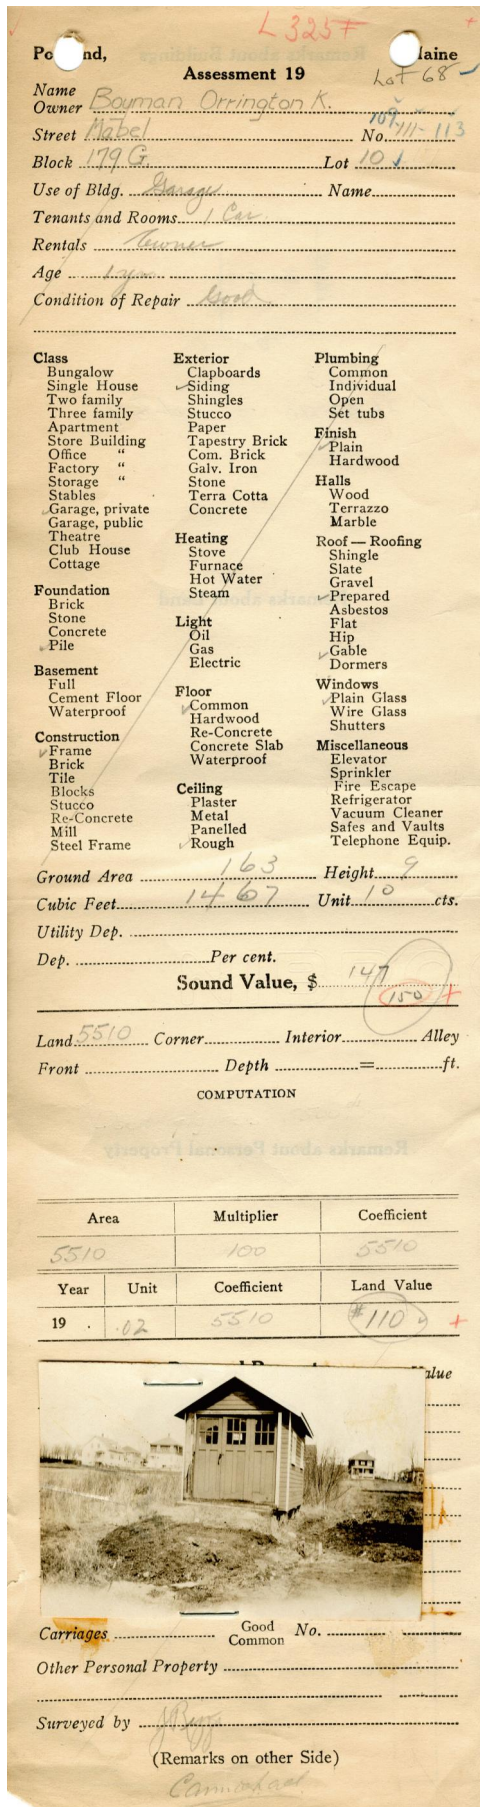 L 325 F
Po nd, Maine
Assessment 19
Lot 68
Name
Owner Boyman Orrington K.
109 - 111 - 113
Street Mabel No.
Block 179 G. Lot 10
Use of Bldg. Garage Name
Tenants and Rooms 1 Car
Rentals Owner
Age 1 yr.
Condition of Repair Good
Class
Bungalow
Single House
Two family
Three family
Apartment
Store Building
Office "
Factory "
Storage "
Stables
Garage, private
Garage, public
Theatre
Club House
Cottage
Foundation
Brick
Stone
Concrete
Pile
Basement
Full
Cement Floor
Waterproof
Construction
Frame
Brick
Tile
Blocks
Stucco
Re-Concrete
Mill
Steel Frame
Exterior
Clapboards
Siding
Shingles
Stucco
Paper
Tapestry Brick
Com. Brick
Galv. Iron
Stone
Terra Cotta
Concrete
Heating
Stove
Furnace
Hot Water
Steam
Light
Oil
Gas
Electric
Floor
Common
Hardwood
Re-Concrete
Concrete Slab
Waterproof
Ceiling
Plaster
Metal
Panelled
Rough
Plumbing
Common
Individual
Open
Set tubs
Finish
Plain
Hardwood
Halls
Wood
Terrazzo
Marble
Roof — Roofing
Shingle
Slate
Gravel
Prepared
Asbestos
Flat
Hip
Gable
Dormers
Windows
Plain Glass
Wire Glass
Shutters
Miscellaneous
Elevator
Sprinkler
Fire Escape
Refrigerator
Vacuum Cleaner
Safes and Vaults
Telephone Equip.
Ground Area 163 Height 9
Cubic Feet 1467 Unit 10 cts.
Utility Dep.
Dep. Per cent.
Sound Value, $ 147
150 +
Land 5510 Corner Interior Alley
Front Depth = ft.
COMPUTATION
Remarks about Personal Property
Area Multiplier Coefficient
5510 100 5510
Year Unit Coefficient Land Value
19 . .02 5510 #110 +
alue
Carriages Good Common No.
Other Personal Property
Surveyed by
(Remarks on other Side)
Carmichael